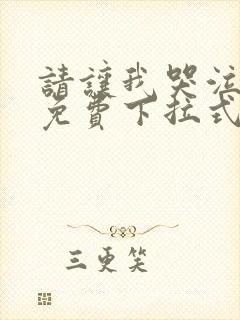 請讓我哭泣
免費下拉式
三更笑